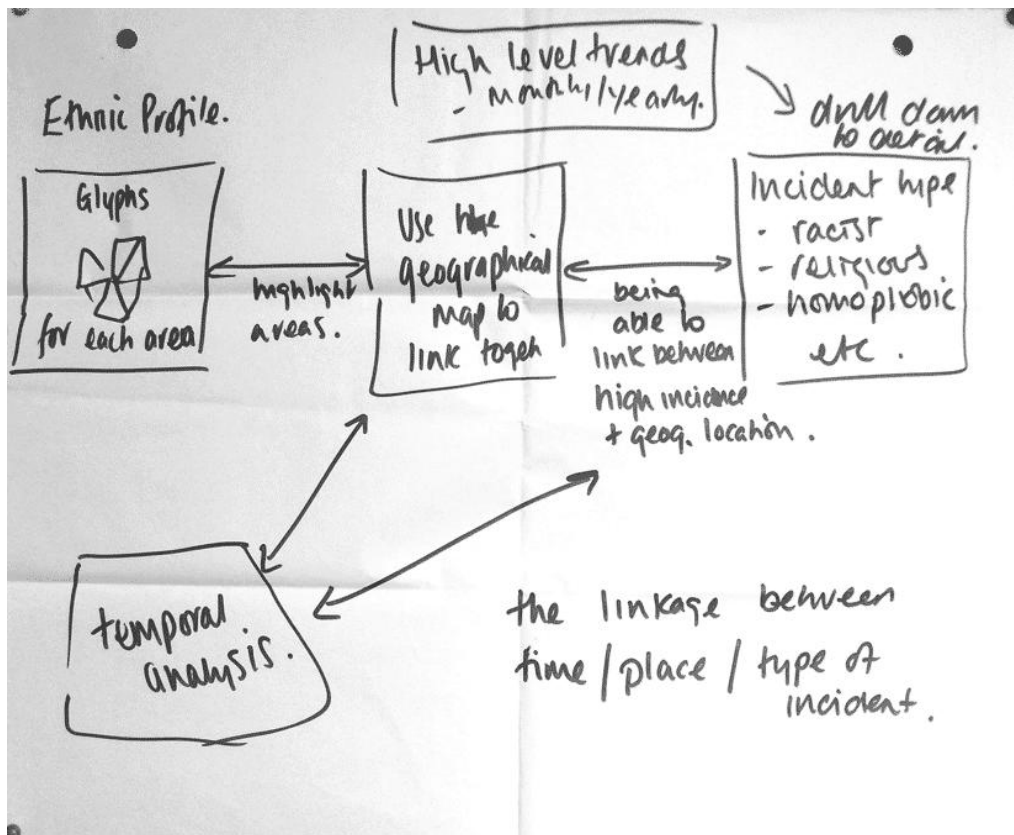 High level trends
- monthly/yearly.
drill down
to detail.
Ethnic Profile.
Glyphs
for each area
highlight
areas.
Use the
geographical
map to
link togeh
being
able to
link between
high incidence
+ geog. location.
Incident type
- racist
- religious
- homophobic
etc.
temporal
analysis.
the linkage between
time/place/type of
incident.